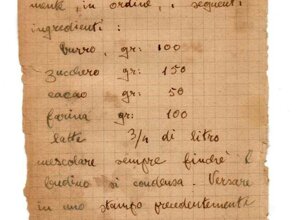 mente, in ordine, i seguenti
ingredienti:
burro, gr: 100
zucchero gr: 150
cacao gr: 50
farina gr: 100
latte 3/4 di litro
mescolare sempre finchè il
budino si condensa. Versare
in uno stampo precedentemente